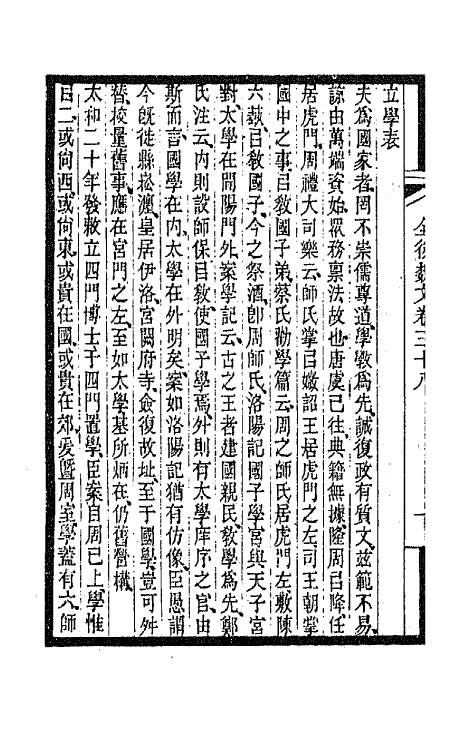 立學表
夫爲國家者罔不崇儒尊道學敎爲先誠復政有質文茲範不易
諒由萬端資始眾務稟法故也唐虞已往典籍無據隆周已降任
居虎門周禮大司樂云師氏掌已媺詔王居虎門之左司王朝掌
國中之事已敎國子弟蔡氏勸學篇云周之師氏居虎門左敷陳
六蓺已敎國子今之祭酒卽周師氏洛陽記國子學宮與天子宮
對太學在開陽門外案學記云古之王者建國親民敎學爲先鄭
氏注云內則設師保目敎使國子學焉外則有太學庠序之官由
斯而言國學在內太學在外明矣案如洛陽記猶有仿像臣愚謂
今旣徙縣崧瀍皇居伊洛宮闕府寺僉復故址至于國學豈可舛
替校量舊事應在宮門之左至如太學基所炳在仍舊營構
太和二十年發敕立四門博士于四門置學臣案自周已上學惟
目二或尙西或尙東或貴在國或貴在郊爰暨周室學蓋有六師
全後魏文卷三十八
十